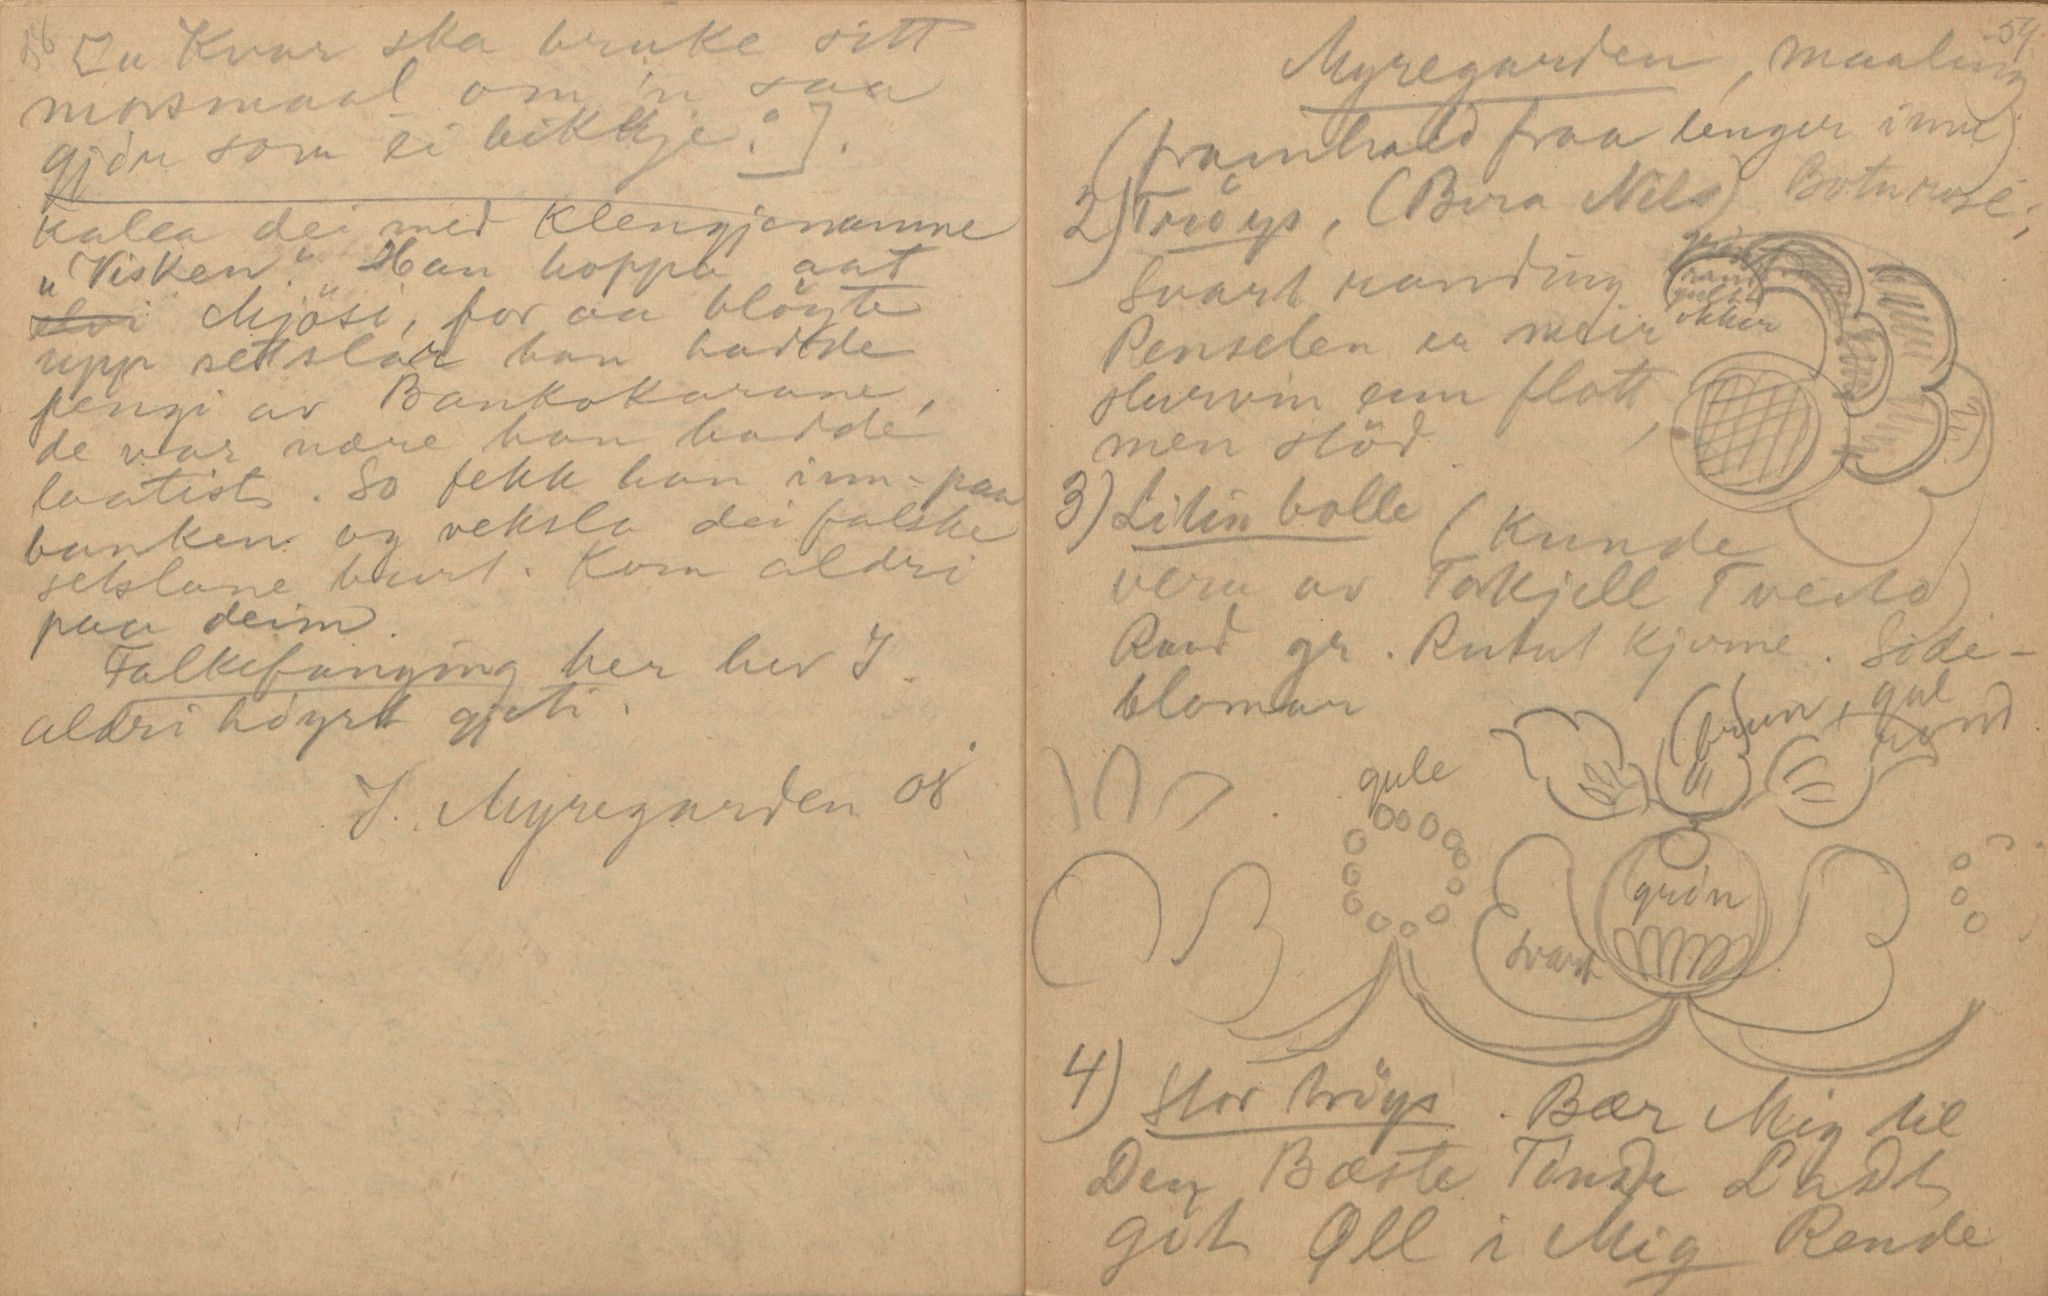 58
Ja Kvar ska bruke sitt
morsmaal om 'n saa
gjör som ei bikkje:].
kalla dei med Klengjenamne
"Visken." Han hoppa aat
elvi Mjösi, for aa bløyte
upp setslar han hadde
fengi av Bankokarane,
de var nære han hadde
laatist. So fekk han inn-paa
banken og veksla dei falske
setslane burt. Kom aldri
paa deim.
Falkefanging her hev J.
aldri höyrt gjeti.
J. Myregarden 08
59
Myregarden, maaling
(framhald fraa lenger inne)
2) Tröys, (Bora Nils) Boturosé;
Svart randing
Penselen er meir
slurvin enn flott,
men stöd
rand
gult
okker
3) Litin bolle (Kunde
vera av Torkjell Tveito)
Rand gr. Rutut kjerne. Side-
blomar
brun, gul
rand
gule
grön
svart
4) Stor tröys. Bær Mig til
Den Bæste Tinde Ladt
got Øll i Mig Rende